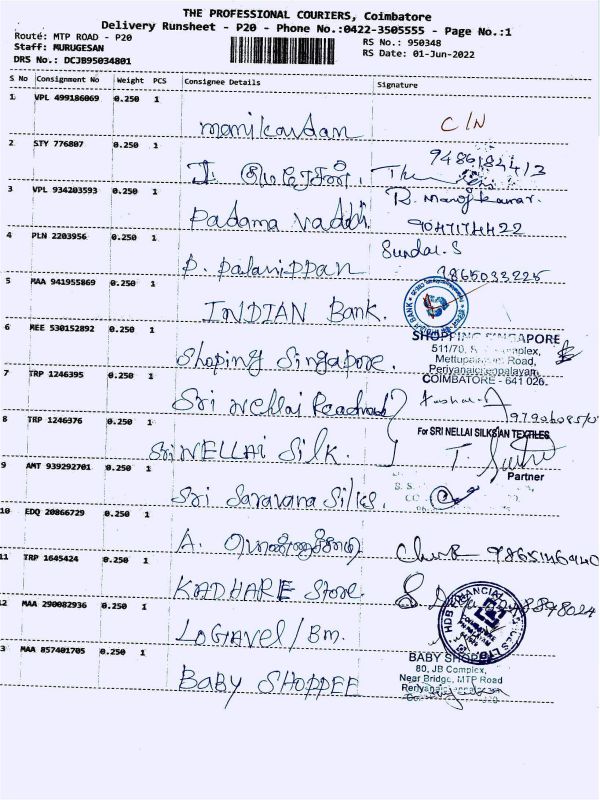 THE PROFESSIONAL COURIERS, Coimbatore
Delivery Runsheet - P20 - Phone No.:0422-3505555 - Page No.:1
Route: MTP ROAD - P20
RS No.: 950348
Staff: MURUGESAN
RS Date: 01-Jun-2022
DRS No.: DCJB95034801
S No Consignment No Weight PCS Consignee Details Signature
1 VPL 499186069 0.250 1
manikandan C/N
2 STY 776807 0.250 1
9486184413
3 VPL 934203593 0.250 1
R. Manojkumar.
Padama Vaddi 9047174422
4 PLN 2203956 0.250 1
Sundar. S
P. Palanippan 9865033225
5 MAA 941955869 0.250 1
INDIAN Bank.
6 MEE 530152892 0.250 1
SHOPPING SINGAPORE
511/70, Complex,
Shoping Singapore.
Road,
7 TRP 1246395 0.250 1
COIMBATORE - 641 026.
Sri Nellai
8 TRP 1246376 0.250 1
For SRI NELLAI SILKS AN TEXTILES
Sri NELLAI Silk.
Partner
9 AMT 939292701 0.250 1
Sri Saravana Silks.
10 EDQ 20866729 0.250 1
A.
11 TRP 1645424 0.250 1
KADHARE Store.
12 MAA 290082936 0.250 1
LOGIAVEL/BM.
3 MAA 857401705 0.250 1
BABY SHOPPEE
80, JB Complex,
Near Bridge, MTP Road
BABY SHOPPEE